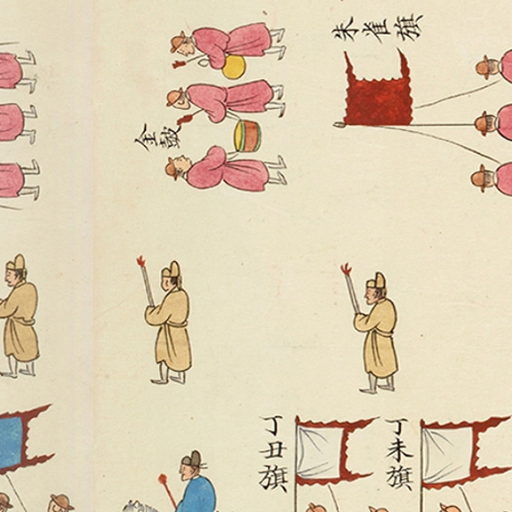 朱雀旗
金鼓
丁未旗
丁丑旗